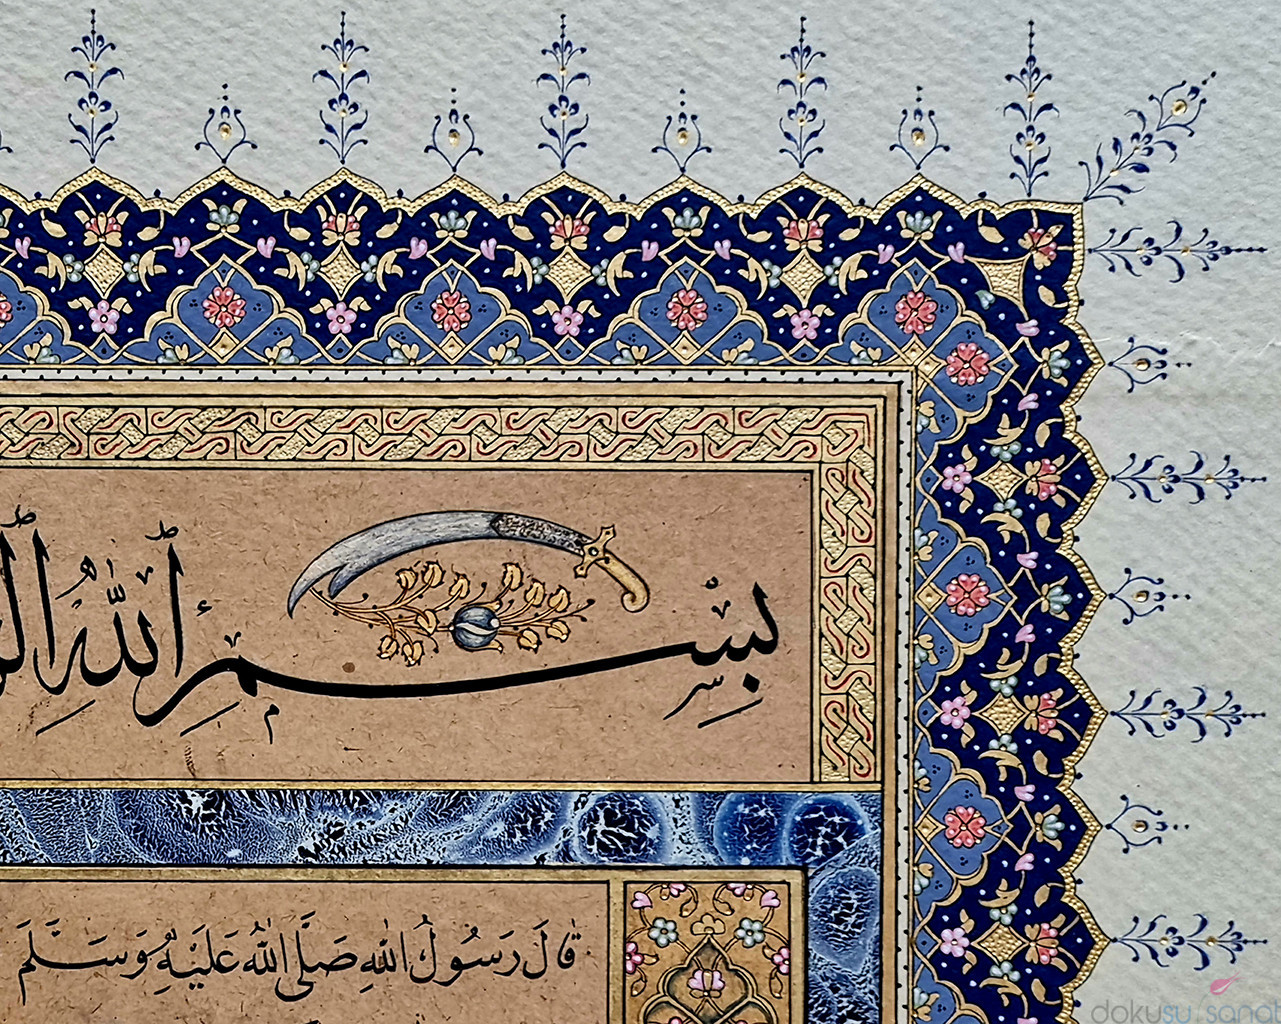 بِسْمِ اللهِ
قَالَ رَسُولُ اللهِ صَلَّى اللهُ عَلَيْهِ وَسَلَّمَ
dokusu sanat